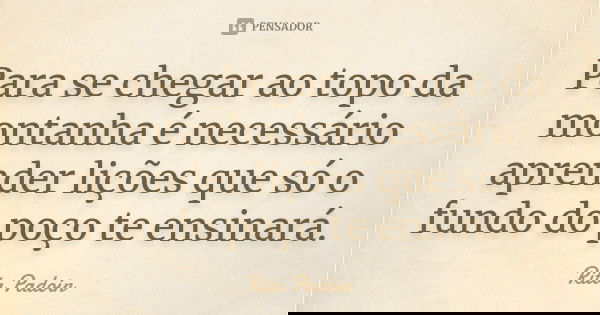 PENSADOR
Para se chegar ao topo da
montanha é necessário
aprender lições que só o
fundo do poço te ensinará.
Rita Padoin